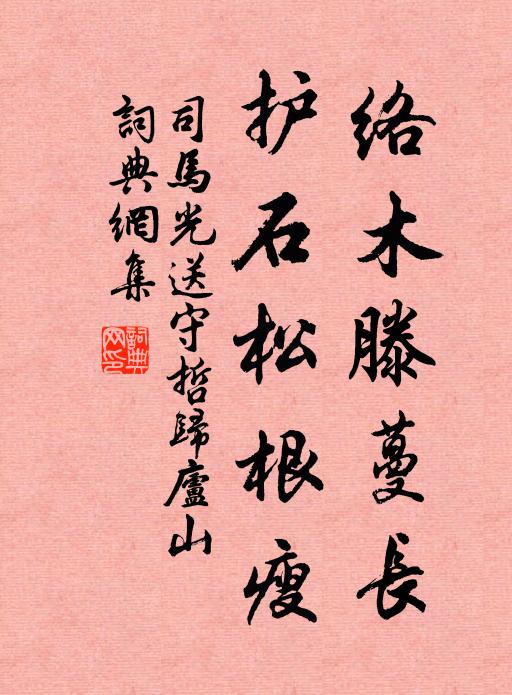 络木滕蔓長
护石松根瘦
司馬光送守哲歸廬山
詞典網集
詞典網印